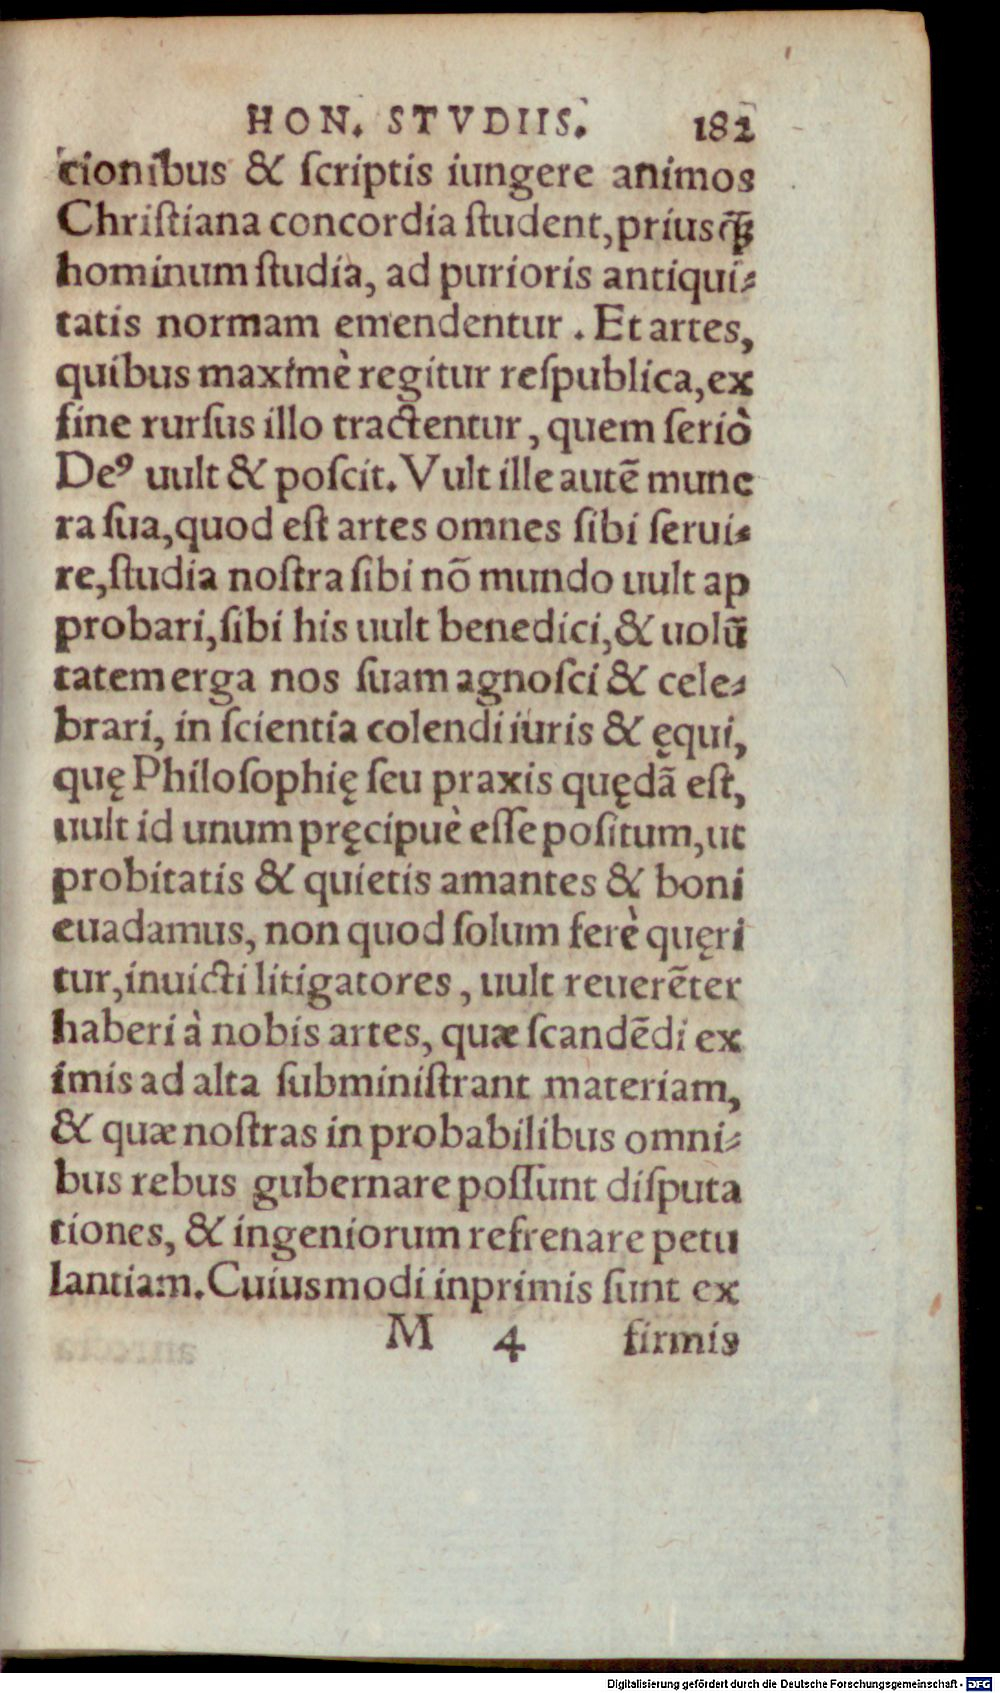 HON. STVDIIS. 182
tionibus & ſcriptis iungere animos
Chriſtiana concordia ſtudent, prius ꝙ̃
hominum ſtudia, ad purioris antiqui-
tatis normam emendentur. Et artes,
quibus maximè regitur reſpublica, ex
fine rurſus illo tractentur, quem ſeriò
Deꝰ uult & poſcit. Vult ille autē mune
ra ſua, quod eſt artes omnes ſibi ſerui-
re, ſtudia noſtra ſibi nō mundo uult ap
probari, ſibi his uult benedici, & uolū
tatem erga nos ſuam agnoſci & cele-
brari, in ſcientia colendi iuris & ęqui,
quę Philoſophię ſeu praxis quędā eſt,
uult id unum pręcipuè eſſe poſitum, ut
probitatis & quietis amantes & boni
euadamus, non quod ſolum ferè quęri
tur, inuicti litigatores, uult reuerēter
haberi à nobis artes, quæ ſcandēdi ex
imis ad alta ſubminiſtrant materiam,
& quæ noſtras in probabilibus omni-
bus rebus gubernare poſſunt diſputa
tiones, & ingeniorum refrenare petu
lantiam. Cuiusmodi inprimis ſunt ex
M 4 firmis
Digitalisierung gefördert durch die Deutsche Forschungsgemeinschaft - DFG